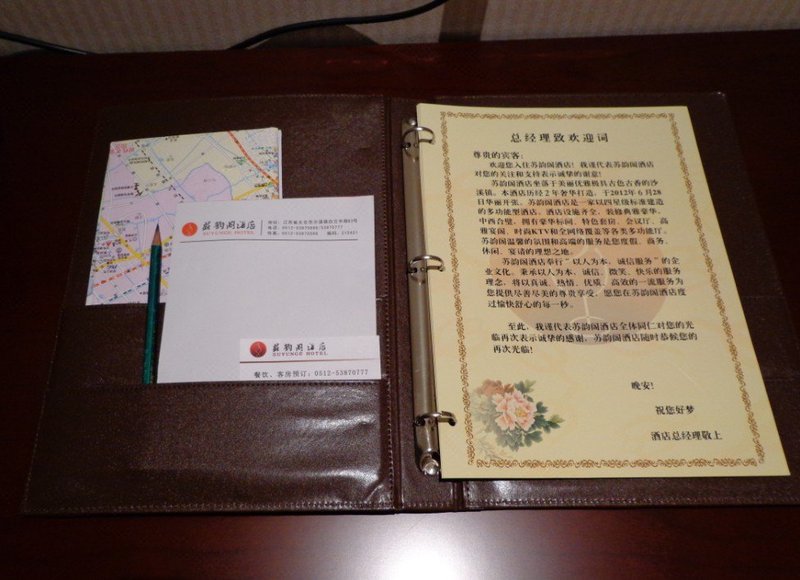 苏韵阁酒店
SUYUNGE HOTEL
苏韵阁酒店
SUYUNGE HOTEL
餐饮、客房预订:0512-53870777
总经理致欢迎词
尊贵的宾客:
欢迎您入住苏韵阁酒店! 我谨代表苏韵阁酒店
对您的关注和支持表示诚挚的谢意!
苏韵阁酒店坐落于美丽优雅极具古色古香的沙
溪镇。本酒店历经2年奢华打造, 于2012年6月28
日华丽开张。苏韵阁酒店是一家以四星级标准建造
的多功能型酒店。酒店设施齐全, 装修典雅豪华,
中西合璧, 拥有豪华标间、特色套房、会议厅、高
雅宴阁、时尚KTV和全网络覆盖等各类多功能厅。
苏韵阁温馨的氛围和高端的服务是您度假、商务、
休闲、宴请的理想之地。
苏韵阁酒店奉行“以人为本, 诚信服务”的企
业文化, 秉承以人为本、诚信、微笑、快乐的服务
理念, 将以真诚、热情、优质、高效的一流服务为
您提供尽善尽美的尊贵享受, 愿您在苏韵阁酒店度
过愉快舒心的每一秒。
至此, 我谨代表苏韵阁酒店全体同仁对您的光
临再次表示诚挚的感谢, 苏韵阁酒店随时恭候您的
再次光临!
晚安!
祝您好梦
酒店总经理敬上